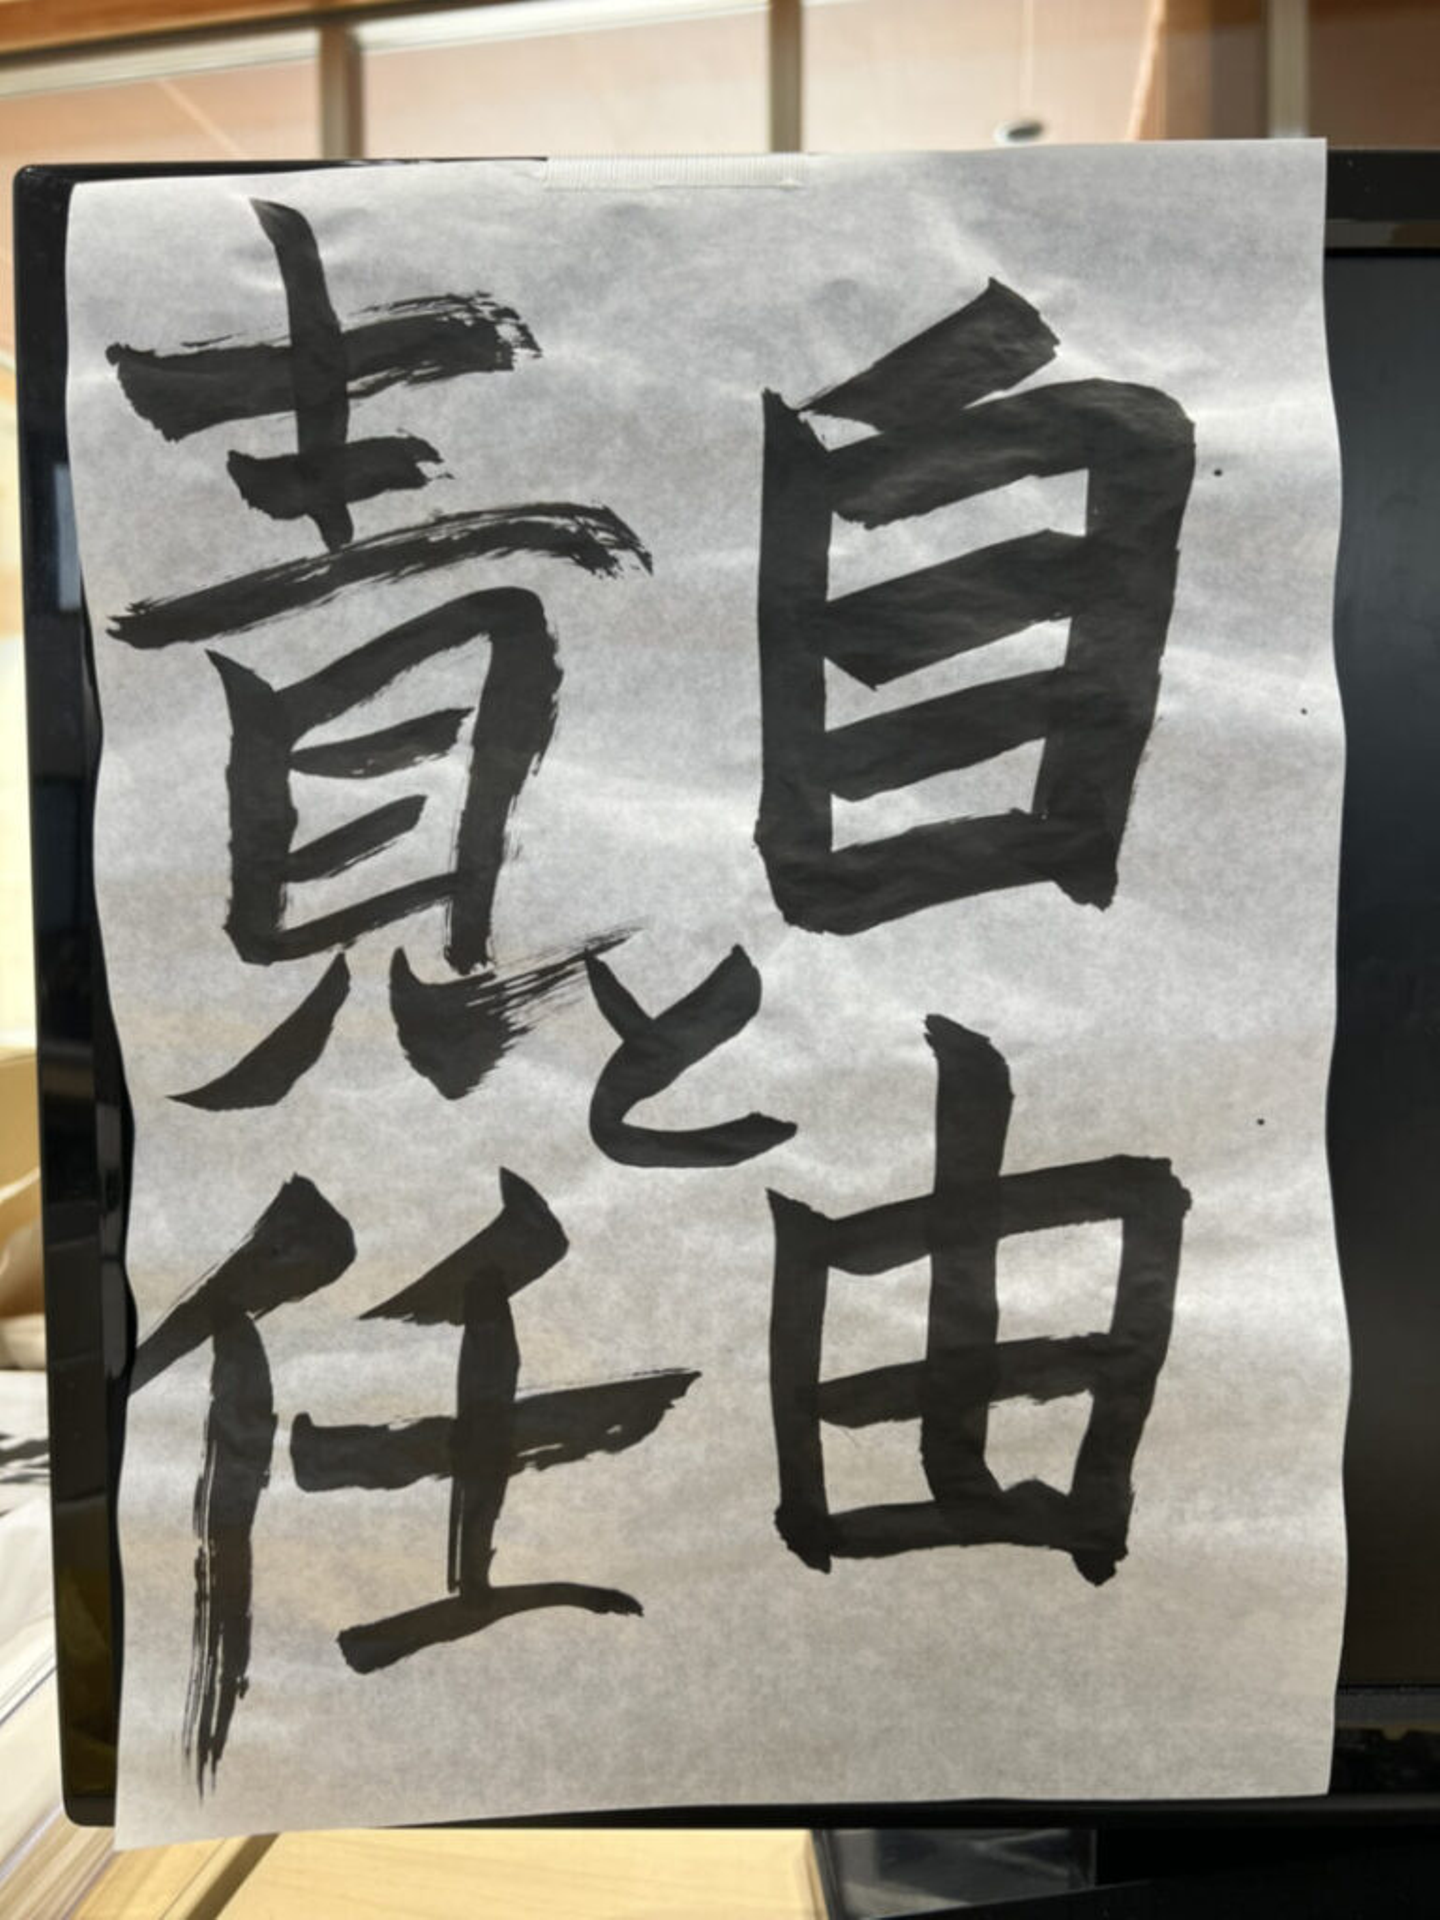 自由
と
責任